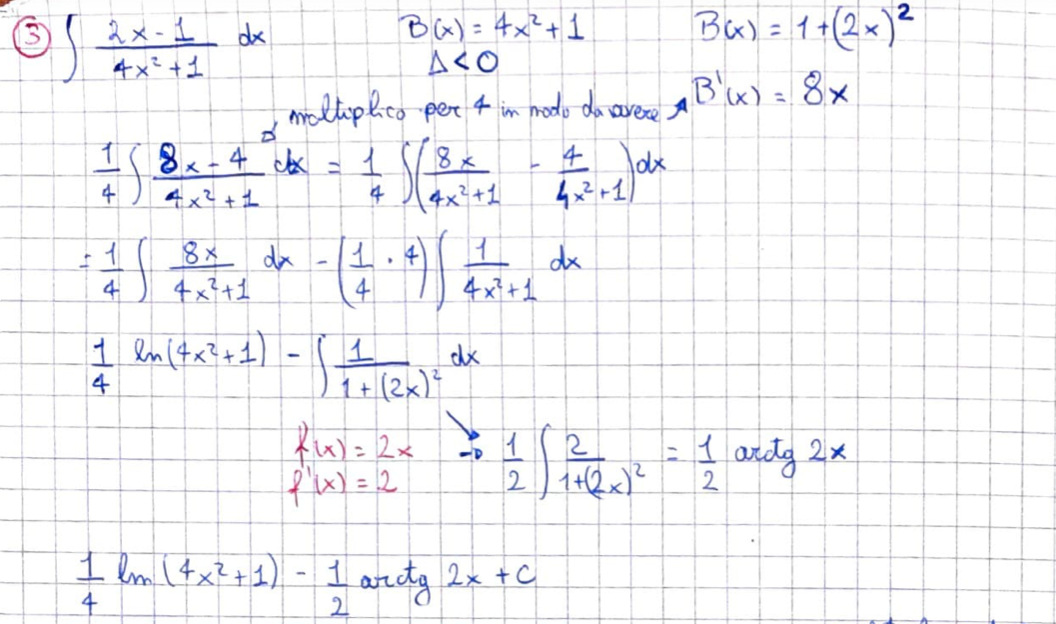 ③ ∫ (2x-1)/(4x²+1) dx B(x) = 4x²+1 B(x) = 1+(2x)²
Δ<0
moltiplico per 4 in modo da avere B'(x) = 8x
1/4 ∫ (8x-4)/(4x²+1) dx = 1/4 ∫(8x/(4x²+1) - 4/(4x²+1))dx
= 1/4 ∫ 8x/(4x²+1) dx - (1/4 · 4) ∫ 1/(4x²+1) dx
1/4 ln(4x²+1) - ∫ 1/(1+(2x)²) dx
f(x) = 2x → 1/2 ∫ 2/(1+(2x)²) = 1/2 arctg 2x
f'(x) = 2
1/4 ln(4x²+1) - 1/2 arctg 2x + c